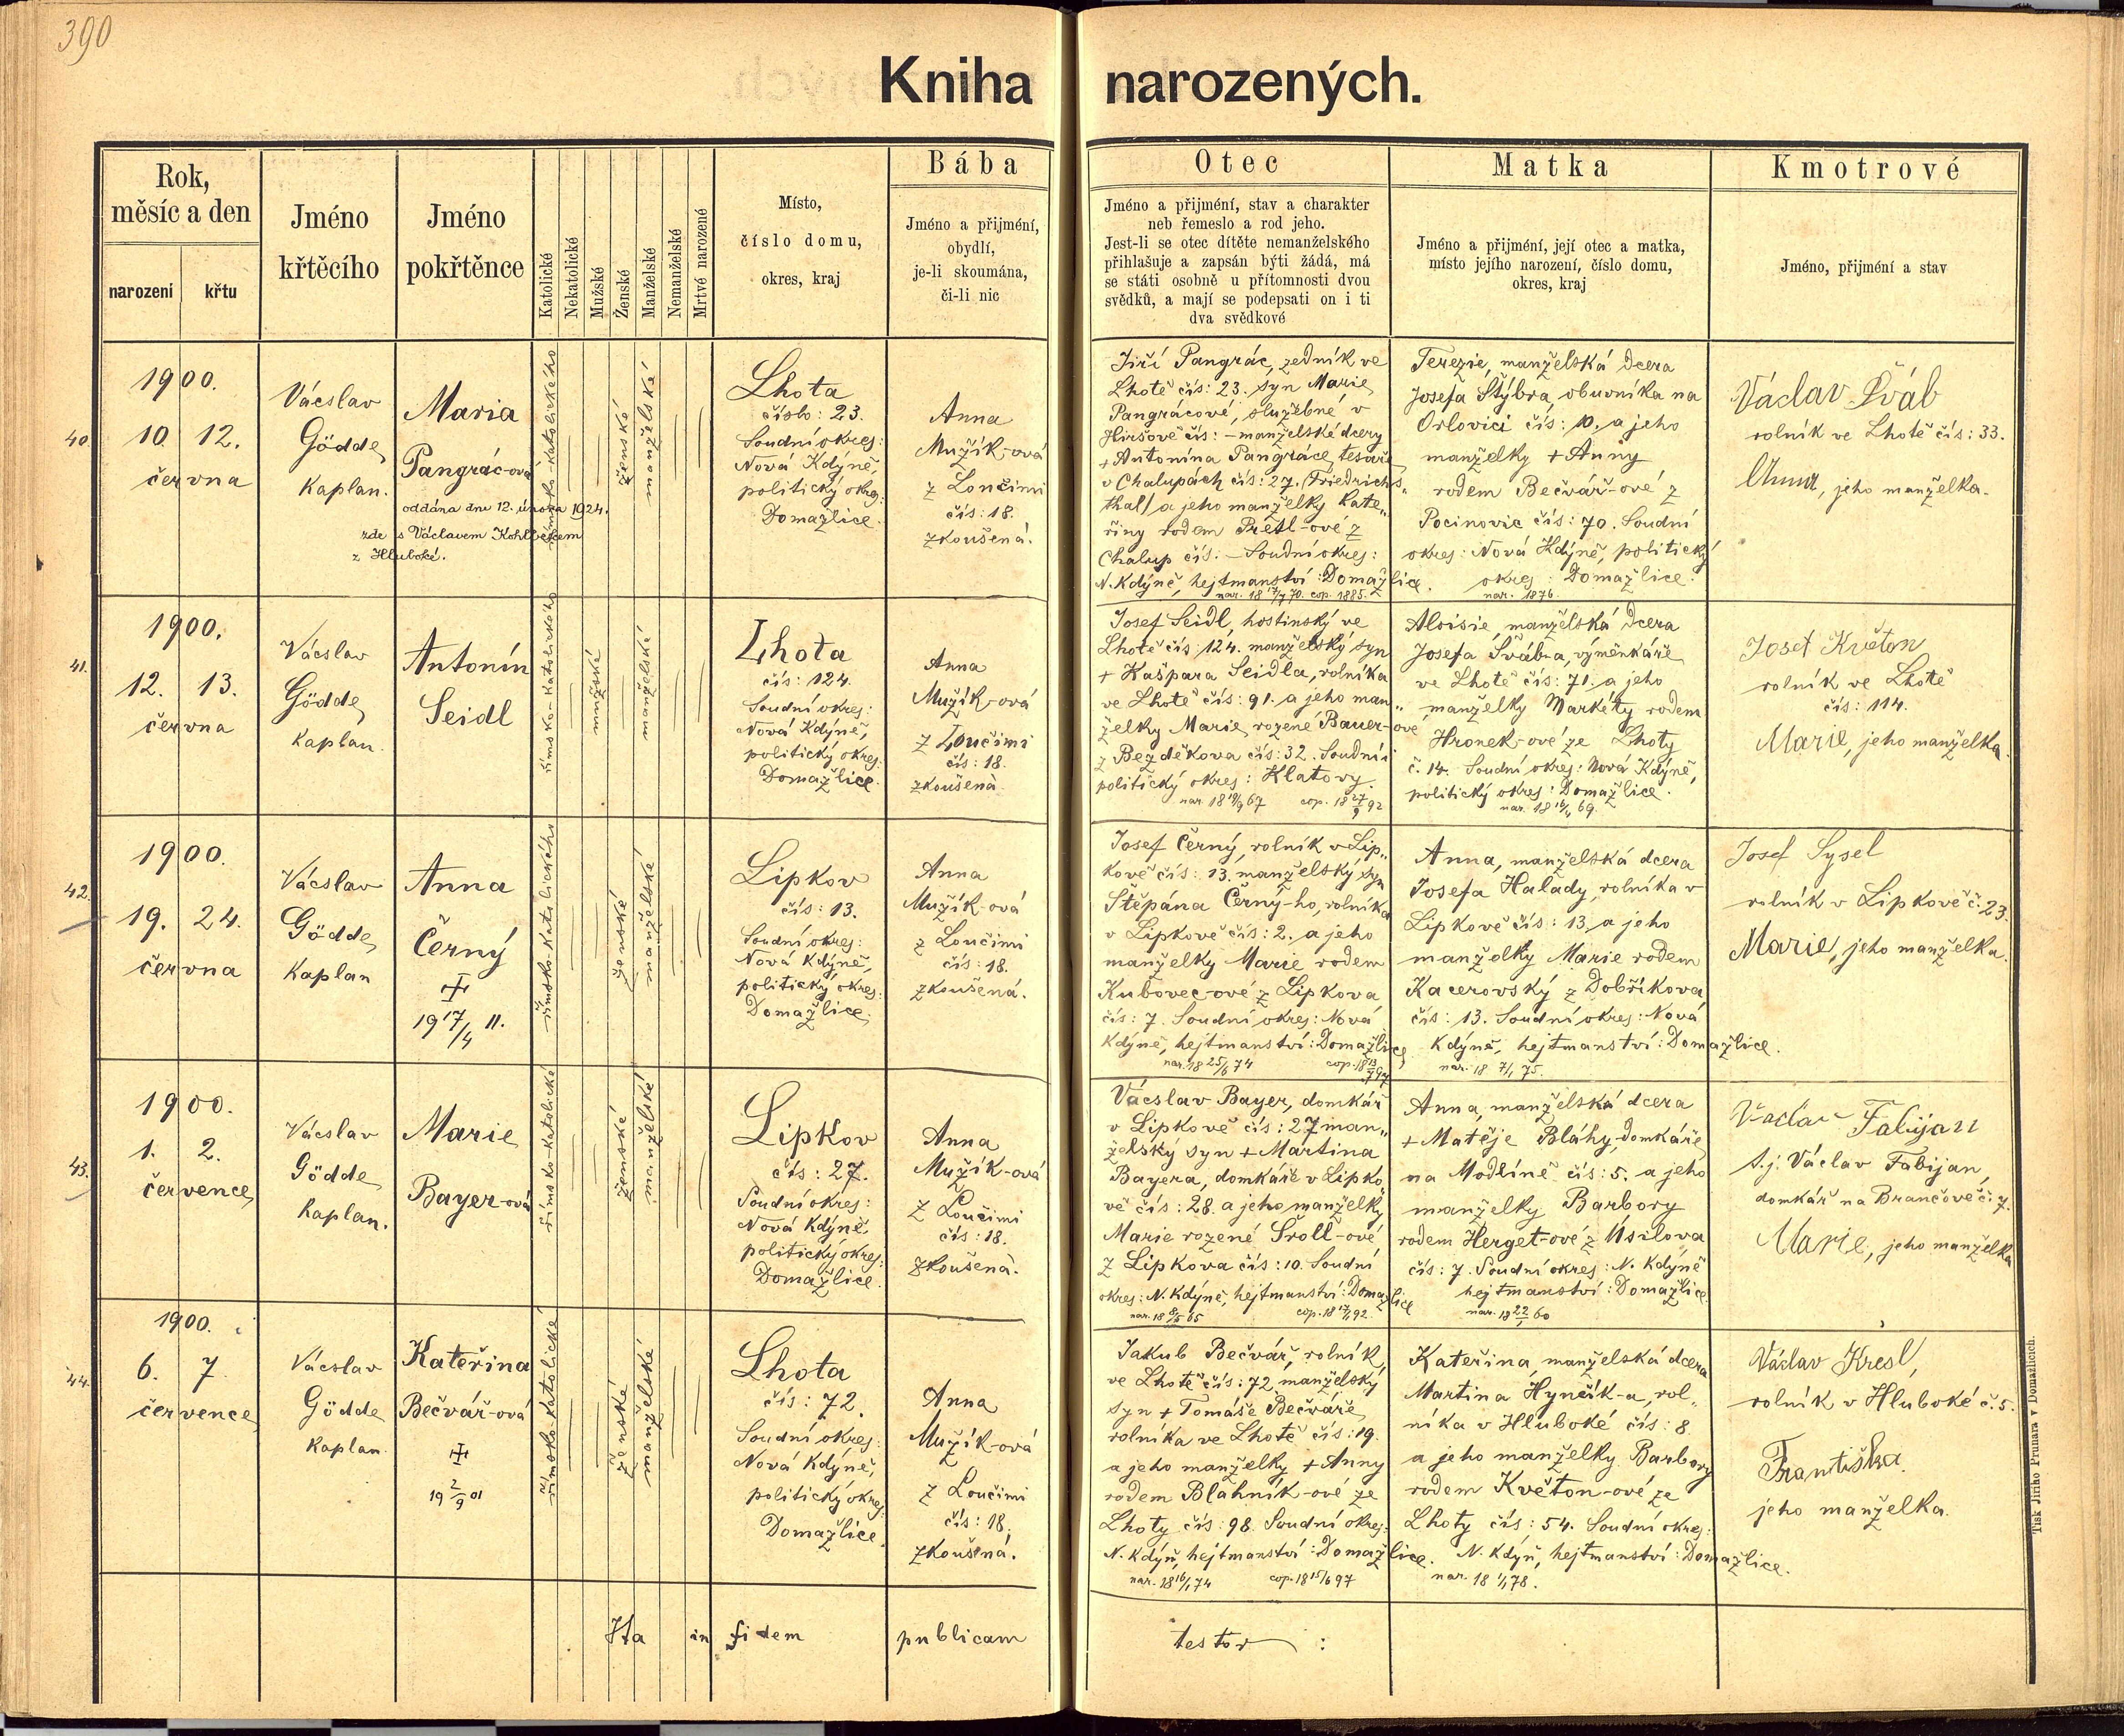 390
Kniha narozených.
Rok,
měsíc a den
narození
křtu
Jméno
křtěcího
Jméno
pokřtěnce
Katolické
Nekatolické
Mužské
Ženské
Manželské
Nemanželské
Mrtvě narozené
Místo,
číslo domu,
okres, kraj
Bába
Jméno a přijmení,
obydlí,
je-li skoumána,
či-li nic
Otec
Jméno a přijmení, stav a charakter
neb řemeslo a rod jeho.
Jest-li se otec dítěte nemanželského
přihlašuje a zapsán býti žádá, má
se státi osobně u přítomnosti dvou
svědků, a mají se podepsati on i ti
dva svědkové
Matka
Jméno a přijmení, její otec a matka,
místo jejího narození, číslo domu,
okres, kraj
Kmotrové
Jméno, přijmení a stav
40.
1900.
10. 12.
června
Vácslav
Gödde,
kaplan.
Maria
Pangrác-ová
oddána dne 12. února 1924.
zde s Václavem Kohlbekem
z Hluboké.
římsko-katolického
ženské
manželské
Lhota
číslo: 23.
Soudní okres:
Nová Kdýně,
politický okres:
Domažlice.
Anna
Mužík-ová
z Loučimi
čís: 18.
zkoušená.
Jiří Pangrác, zedník ve
Lhotě čís: 23. syn Marie
Pangrácové, služebné v
Hiršově čís: – manželské dcery
+ Antonína Pangráce, tesaře
v Chalupách čís: 27. (Friedrichs„
thal) a jeho manželky Kate„
řiny rodem Prêtl-ové z
Chalup čís: – Soudní okres:
N. Kdýně, hejtmanství: Domažlice.
nar. 18 17/7 70. cop. 1885.
Terezie, manželská dcera
Josefa Štýbra, obuvníka na
Orlovici čís: 10. a jeho
manželky + Anny
rodem Bečvář-ové z
Pocinovic čís: 70. Soudní
okres: Nová Kdýně, politický
okres: Domažlice.
nar. 1876.
Václav Šváb
rolník ve Lhotě čís: 33.
Anna, jeho manželka.
41.
1900.
12. 13.
června
Vácslav
Gödde,
kaplan.
Antonín
Seidl
římsko-katolického
mužské
manželské
Lhota
čís: 124.
Soudní okres:
Nová Kdýně,
politický okres:
Domažlice.
Anna
Mužík-ová
z Loučimi
čís: 18.
zkoušená.
Josef Seidl, hostinský ve
Lhotě čís: 124. manželský syn
+ Kašpara Seidla, rolníka
ve Lhotě čís: 91. a jeho man„
želky Marie, rozené Bauer-ové
z Bezděkova čís: 32. Soudní i
politický okres: Klatovy.
nar. 18 19/9 67 cop. 18 27/9 92
Aloisie, manželská dcera
Josefa Švábna, výměnkáře
ve Lhotě čís: 71. a jeho
manželky Markéty rodem
Hronek-ové ze Lhoty
č. 14. Soudní okres: Nová Kdýně,
politický okres: Domažlice.
nar. 18 16/4 69.
Josef Květon
rolník ve Lhotě
čís: 114.
Marie, jeho manželka.
42.
1900.
19. 24.
června
Vácslav
Gödde,
kaplan
Anna
Černý
+
19 17/4 11.
římsko-katolického
ženské
manželské
Lipkov
čís: 13.
Soudní okres:
Nová Kdýně,
politický okres:
Domažlice.
Anna
Mužík-ová
z Loučimi
čís: 18.
zkoušená.
Josef Černý, rolník v Lip„
kově čís: 13. manželský syn
Štěpána Černý-ho, rolníka
v Lipkově čís: 2. a jeho
manželky Marie rodem
Kubovec-ové z Lipkova
čís: 7. Soudní okres: Nová
Kdýně, hejtmanství: Domažlice,
nar. 18 25/6 74 cop. 18 13/7 97
Anna, manželská dcera
Josefa Halady, rolníka v
Lipkově čís: 13, a jeho
manželky Marie rodem
Kacerovský z Dobříkova
čís: 13. Soudní okres: Nová
Kdýně, hejtmanství: Domažlice.
nar. 18 7/1 75.
Josef Sysel
rolník v Lipkově č. 23.
Marie, jeho manželka.
43.
1900.
1. 2.
července
Vácslav
Gödde,
kaplan.
Marie
Bayer-ová
římsko-katolické
ženské
manželské
Lipkov
čís: 27.
Soudní okres:
Nová Kdýně,
politický okres:
Domažlice.
Anna
Mužík-ová
z Loučimi
čís: 18.
zkoušená.
Vácslav Bayer, domkář
v Lipkově čís: 27 man„
želský syn + Martina
Bayera, domkáře v Lipko„
vě čís: 28. a jeho manželky
Marie rozené Šroll-ové
z Lipkova čís: 10. Soudní
okres: N. Kdýně, hejtmanství: Domažlice
nar. 18 8/5 65 cop. 18 17/1 92.
Anna, manželská dcera
+ Matěje Bláhy, domkáře
na Modlíně čís: 5. a jeho
manželky Barbory
rodem Herget-ové z Úsilova
čís: 7. Soudní okres: N. Kdýně
hejtmanství: Domažlice.
nar. 18 22/1 60
Václav Fabijan
t.j. Václav Fabijan,
domkář na Brančově č: 7.
Marie, jeho manželka
44.
1900.
6. 7
července
Vácslav
Gödde
kaplan.
Kateřina
Bečvář-ová
+
19 2/9 01
římsko-katolické
ženské
manželské
Lhota
čís: 72.
Soudní okres:
Nová Kdýně,
politický okres
Domažlice.
Anna
Mužík-ová
z Loučimi
čís: 18,
zkoušená.
Jakub Bečvář, rolník,
ve Lhotě čís: 72, manželský
syn + Tomáše Bečváře,
rolníka ve Lhotě čís: 19.
a jeho manželky + Anny
rodem Blahník-ové ze
Lhoty čís: 98. Soudní okres:
N. Kdyň, hejtmanství: Domažlice.
nar. 18 16/1 74 cop. 18 15/6 97
Kateřina, manželská dcera
Martina Hynčík-a, rol„
níka v Hluboké čís: 8.
a jeho manželky Barbory
rodem Květon-ové ze
Lhoty čís: 54. Soudní okres:
N. Kdyň, hejtmanství: Domažlice.
nar. 18 1/1 78.
Václav Kresl,
rolník v Hluboké č. 5.
Františka.
jeho manželka.
Ita in fidem publicam testor :
Tisk Jiřího Prunara v Domažlicích.